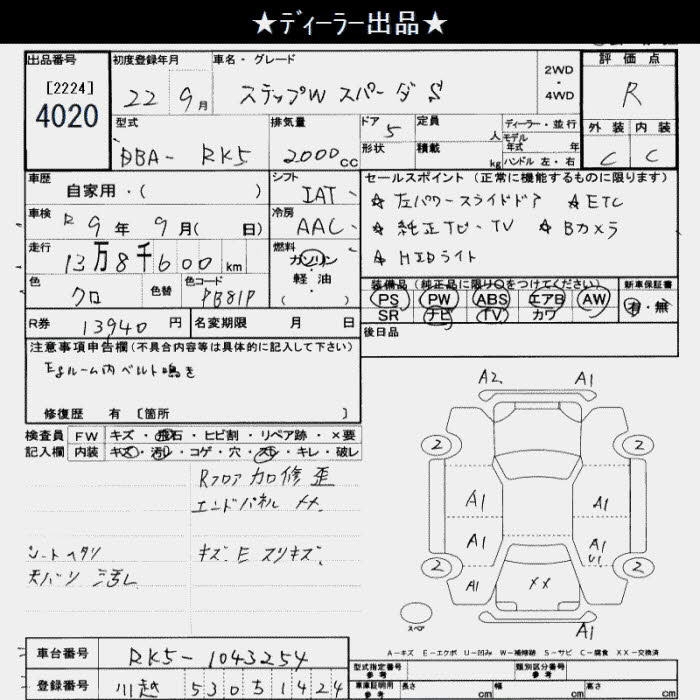 ★ディーラー出品★
出品番号 初度登録年月 車名・グレード 2WD・4WD 評価点
[2224]
4020 22 9月 ステップW スパーダ S R
型式 排気量 ドア 5 定員 人 ディーラー・並行 外装 内装
DBA- RK5 2000cc 形状 積載 kg モデル年式 年 ハンドル 左・右 C C
車歴 自家用・( ) シフト IAT セールスポイント (正常に機能するものに限ります)
車検 R 9年 9月( 日) 冷房 AAC ☆ 左パワースライドドア ☆ ETC
走行 13万8千600km 燃料 ガソリン 軽・油 ( ) ☆ 純正ナビ・TV ☆ Bカメラ
☆ HIDライト
色 クロ 色替 色コード PB81P 装備品 (純正品に限り○をつけてください) 新車保証書
PS PW ABS エアB AW 有・無
SR ナビ TV カワ
R券 13940円 名変期限 月 日 後日品
注意事項申告欄 (不具合内容等は具体的に記入して下さい)
Egルーム内ベルト鳴き
修復歴 有 [箇所 ]
検査員 FW キズ・飛石・ヒビ割・リペア跡・×要
記入欄 内装 キズ・汚レ・コゲ・穴・スレ・キレ・破レ
Rフロア 加修 歪
エンドパネル XX
シートヘタリ キズ E スリキズ
天バリ 汚レ
A2 A1
2 2
A1 A1
A1 A1
U1
2 2
A1 XX
A1
スペア
A-キズ E-エクボ U-凹み W-補修跡 S-サビ C-腐食 XX-交換済
車台番号 RK5-1043254 型式指定番号 参考 類別区分番号 参考
登録番号 川越 530 51424 車庫証明用 参考 長さ cm 幅 cm 高さ cm